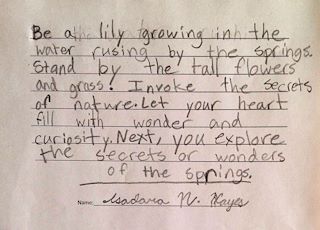 Be a lily growing in the
water rusing by the springs.
Stand by the tall flowers
and grass! Invoke the secrets
of nature. Let your heart
fill with wonder and
curiosity. Next, you explore
the secrets or wonders
of the springs.
Name: Isadora N. Hayes